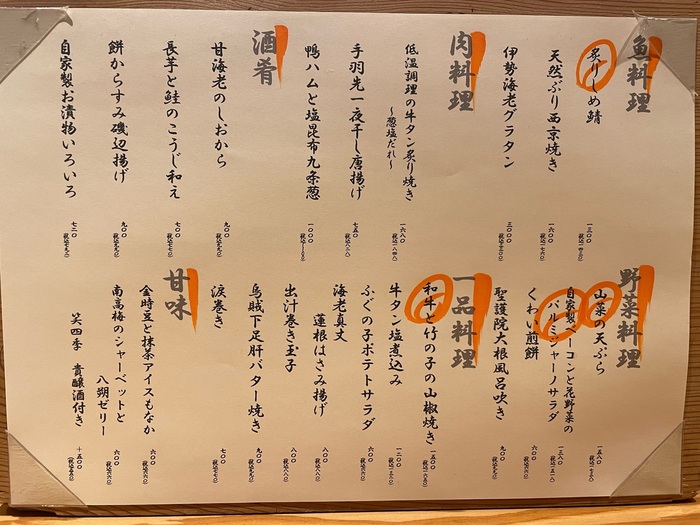 魚料理
炙りしめ鯖
一三〇〇
(税込一四三〇)
天然ぶり西京焼き
一六〇〇
(税込一七六〇)
伊勢海老グラタン
三〇〇〇
(税込三三〇〇)
肉料理
低温調理の牛タン炙り焼き
～葱塩だれ～
一六八〇
(税込一八四八)
手羽先一夜干し唐揚げ
七五〇
(税込八二五)
鴨ハムと塩昆布九条葱
一〇〇〇
(税込一一〇〇)
酒肴
甘海老のしおから
九〇〇
(税込九九〇)
長芋と鮭のこうじ和え
七〇〇
(税込七七〇)
餅からすみ磯辺揚げ
九〇〇
(税込九九〇)
自家製お漬物いろいろ
七二〇
(税込七九二)
野菜料理
山菜の天ぷら
一五八〇
(税込一七三八)
自家製ベーコンと花野菜の
パルミジャーノサラダ
一三八〇
(税込一五一八)
くわい煎餅
六〇〇
(税込六六〇)
聖護院大根風呂吹き
九〇〇
(税込九九〇)
一品料理
和牛と竹の子の山椒焼き
一五〇〇
(税込一六五〇)
牛タン塩煮込み
一二〇〇
(税込一三二〇)
ふぐの子ポテトサラダ
六〇〇
(税込六六〇)
海老真丈
蓮根はさみ揚げ
八〇〇
(税込八八〇)
出汁巻き玉子
八〇〇
(税込八八〇)
烏賊下足肝バター焼き
九〇〇
(税込九九〇)
涙巻き
七〇〇
(税込七七〇)
甘味
金時豆と抹茶アイスもなか
六〇〇
(税込六六〇)
南高梅のシャーベットと
八朔ゼリー
六〇〇
(税込六六〇)
笑四季 貴醸酒付き
+五〇〇
(税込五五〇)